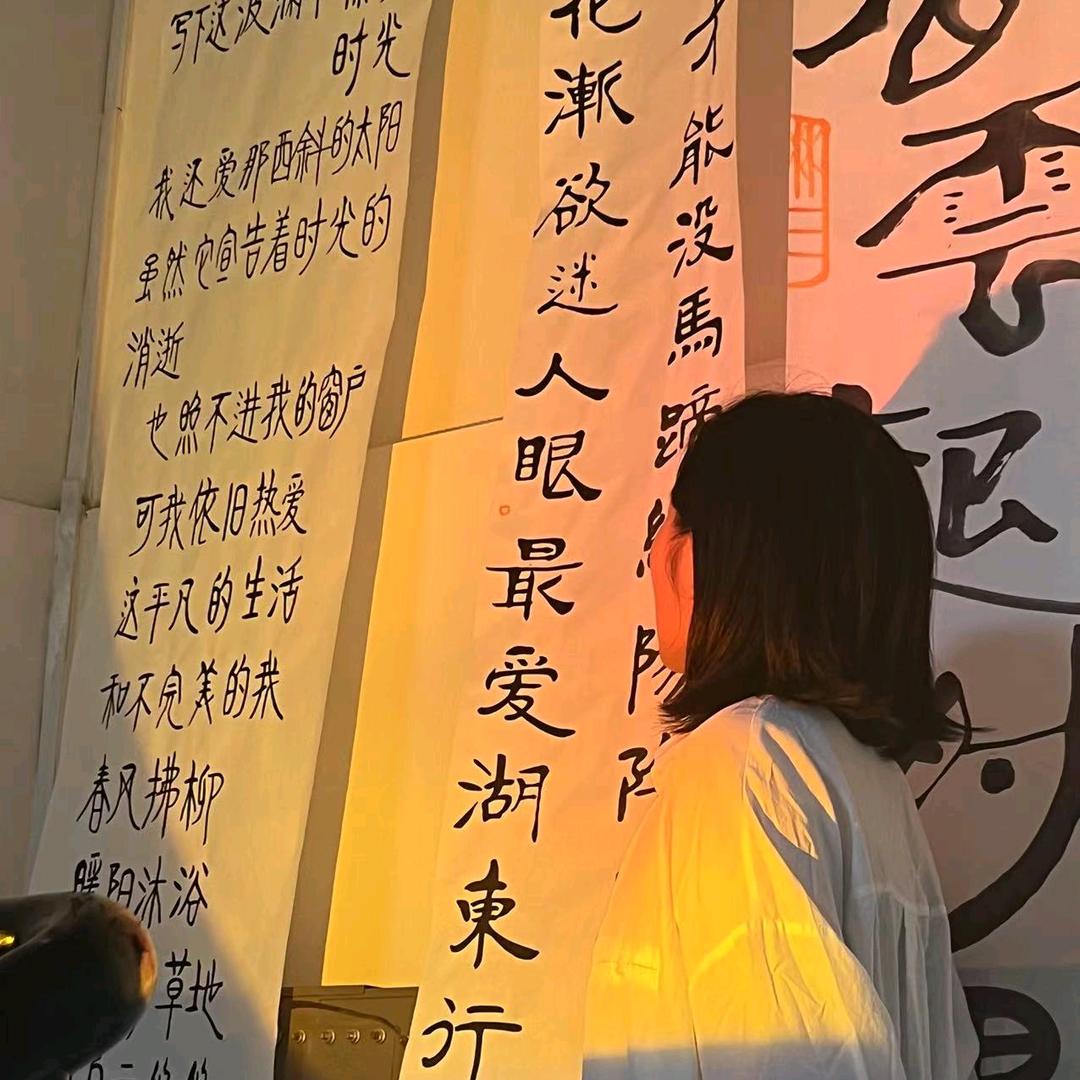 写下这波澜不
时光
我还爱那西斜的太阳
虽然它宣告着时光的
消逝
也照不进我的窗户
可我依旧热爱
这平凡的生活
和不完美的我
春风拂柳
暖阳沐浴
草地
花漸欲迷人眼最爱湖東行
才能没馬蹄
雲